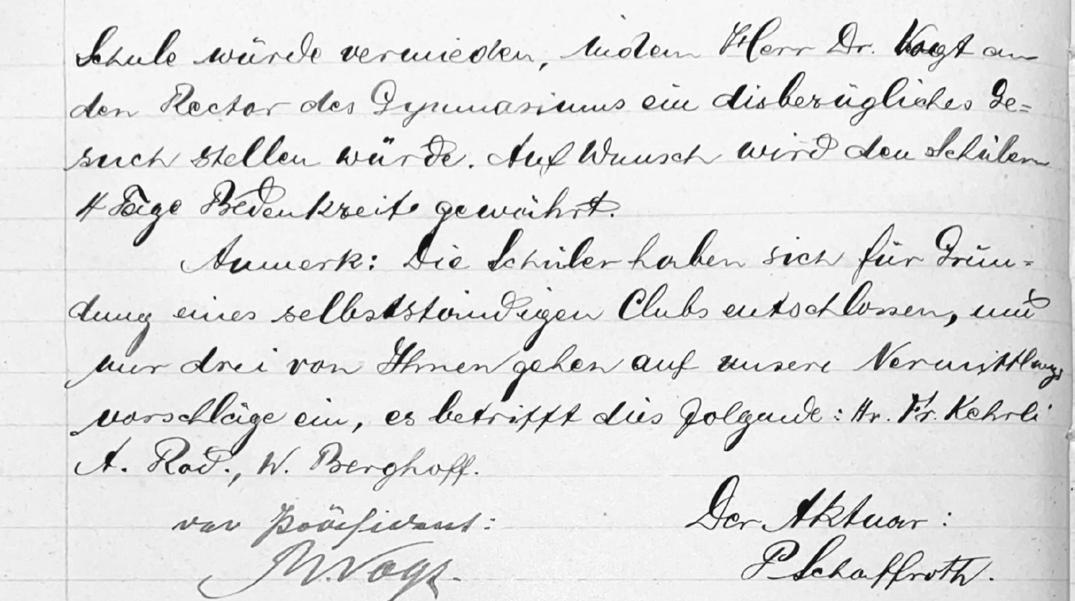 Schule würde vermieden, indem Herr Dr. Vogt an
den Rector des Gymnasiums ein disbezügliches Ge=
such stellen würde. Auf Wunsch wird den Schülern
4 Tage Bedenkzeit gewährt.
Anmerk: Die Schüler haben sich für Grün-
dung eines selbstständigen Clubs entschlossen, und
nur drei von Ihnen gehen auf unsere Vermittlungs
vorschläge ein, es betrifft dies folgende: Hr. Fr. Kehrli
A. Rod., W. Berghoff.
der Präsident:
M. Vogt.
Der Aktuar:
P Schaffroth.